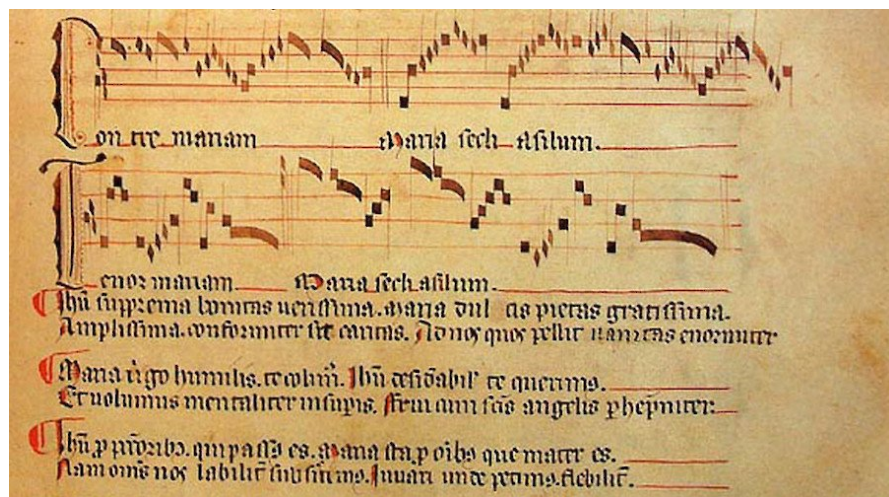 Con tre mariam Maria secli asilum.
Tenor mariam Maria secli asilum.
Ihū suprema bonitas uerissima. Maria dul cis pietas gratissima.
Amplissima. conformiter sit caritas. Ad nos quos pellit uanitas enormiter
Maria ũgo humilis. te colim᷒. Ihū desidabil᷒ te querimꝰ.
Et uolumus mentaliter in suꝑis. Frui cum scīs angelis ꝑhep̄niter.
Ihū ꝓ pctōribꝫ. qui passꝰ es. Maria sta ꝓ oībꝫ que mater es.
Nam om̄s nos labilit̄ subsistimꝰ. Iuuari unde petimꝰ. flebilit̄.